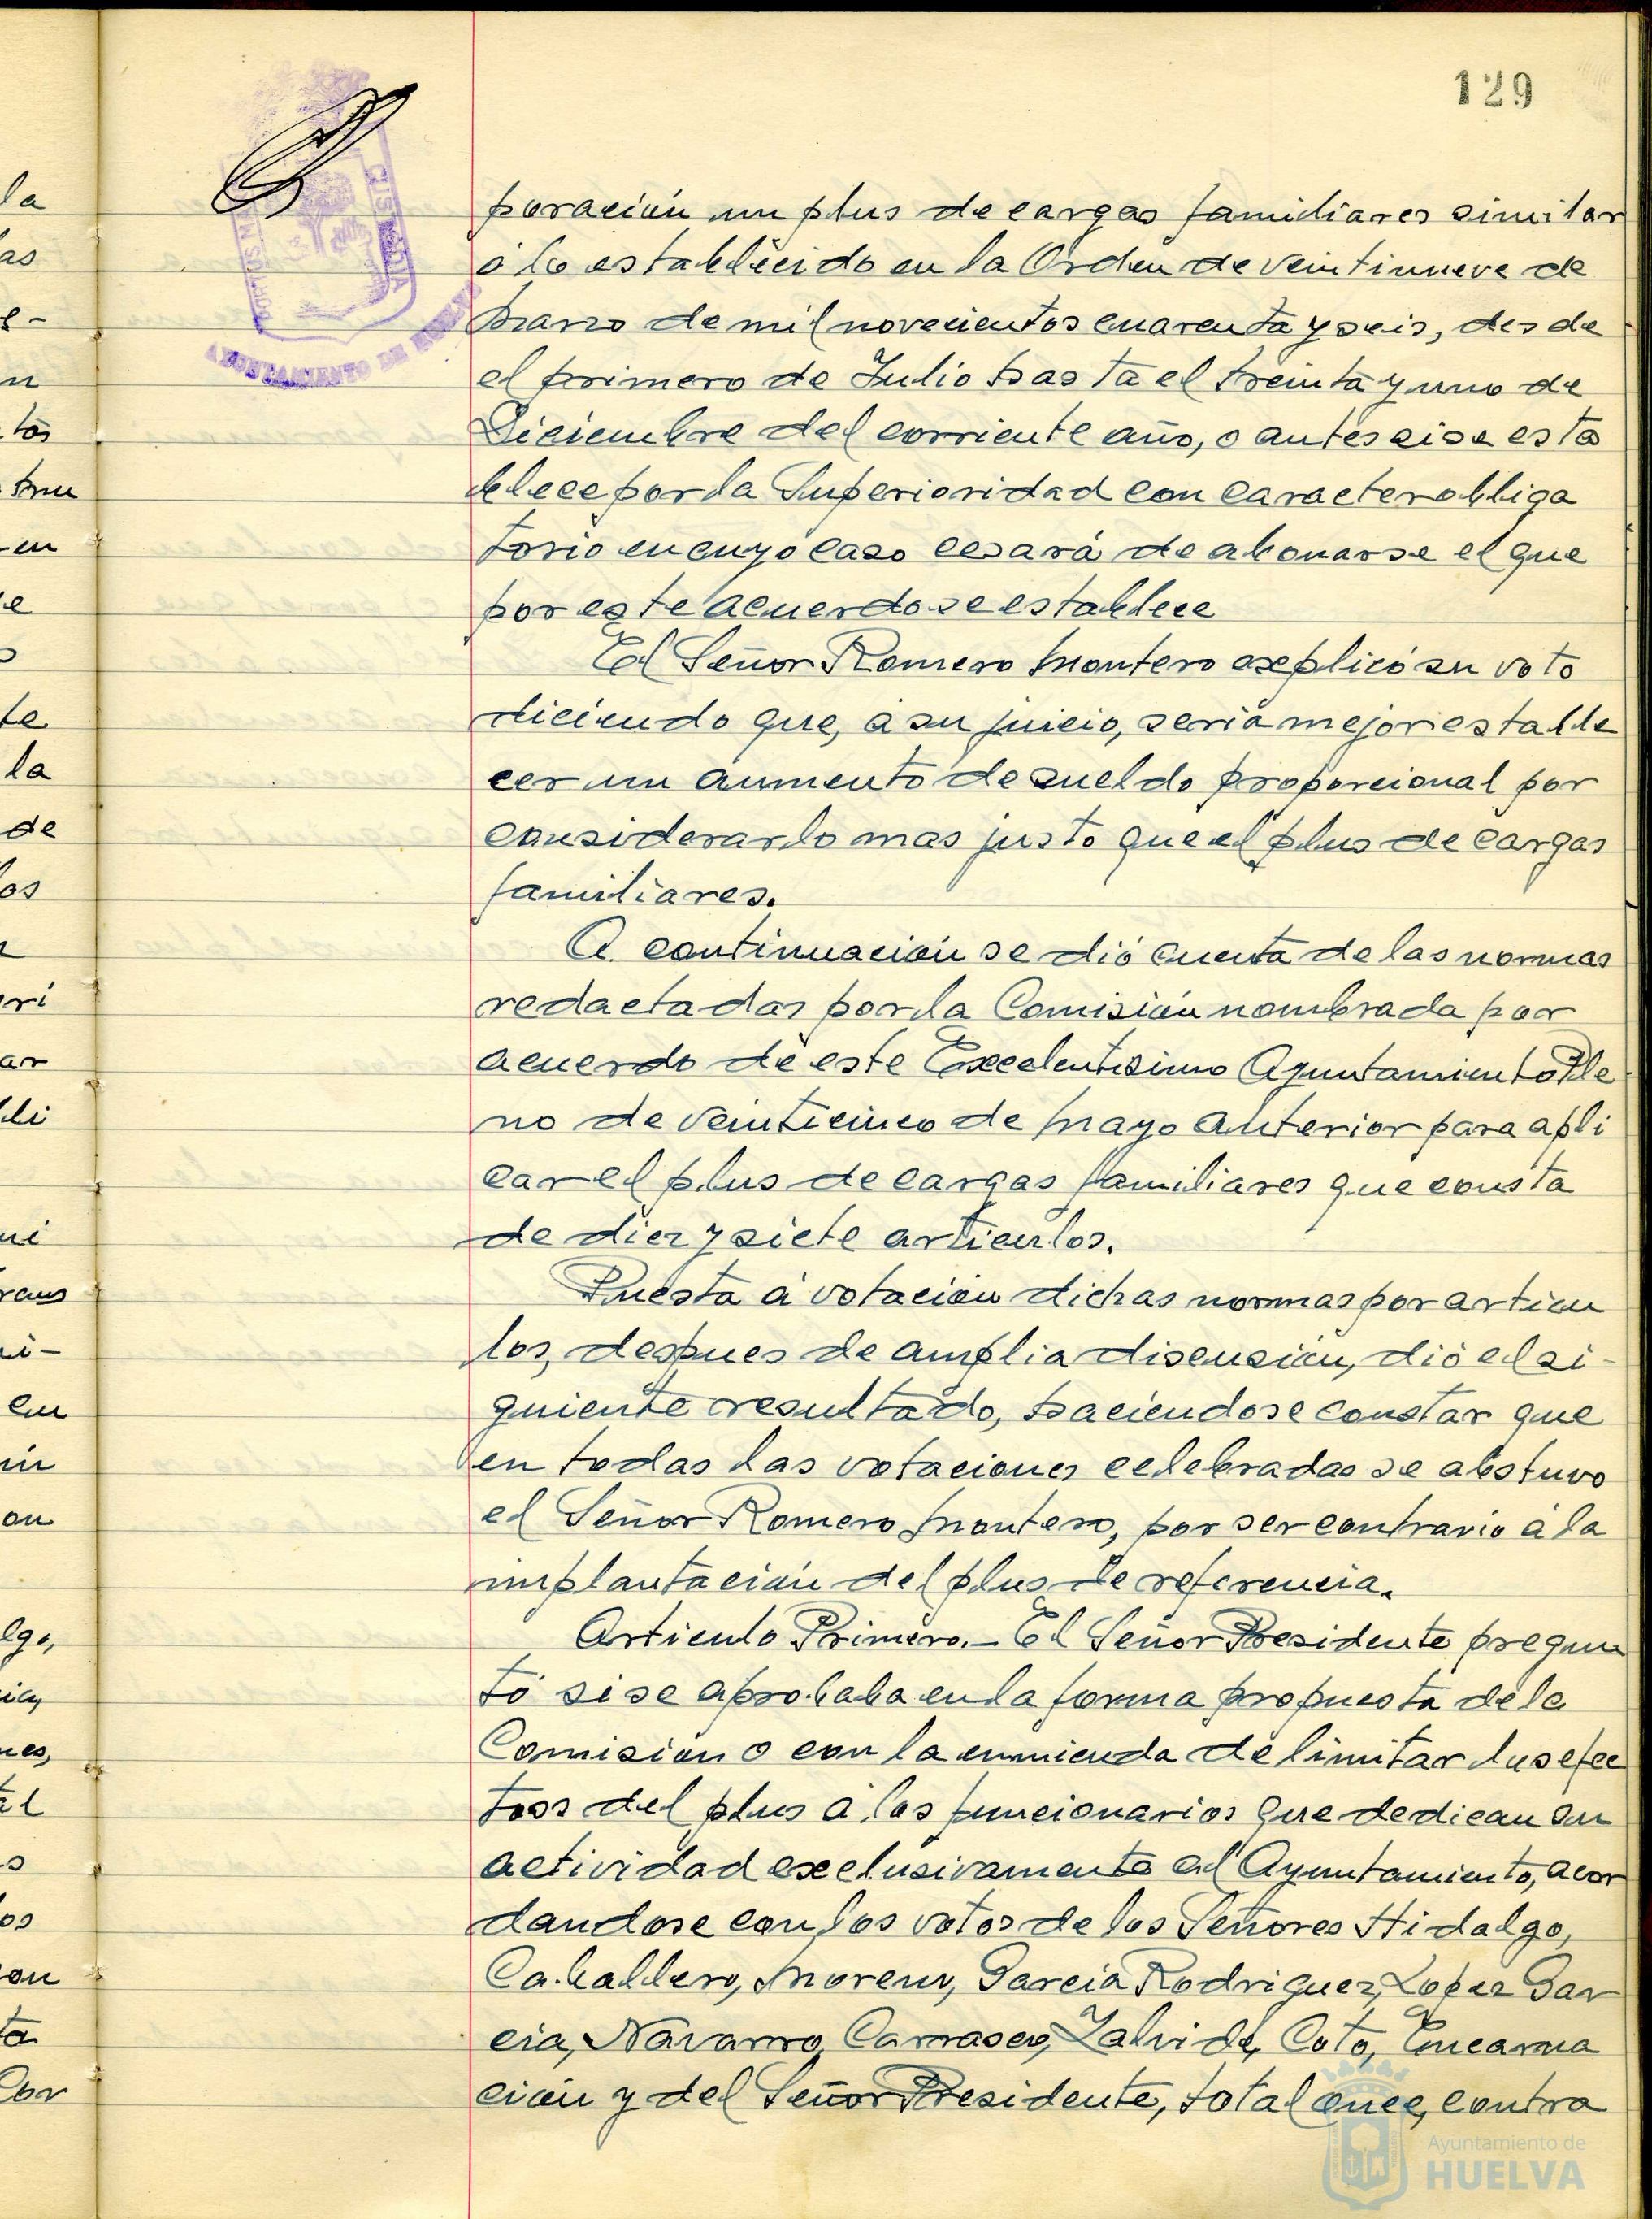 129
poración un plus de cargas familiares similar
a lo establécido en la Orden de veintinueve de
marzo de mil novecientos cuarenta y seis, desde
el primero de Julio hasta el treinta y uno de
Diciembre del corriente año, o antes si se esta
blece por la Superioridad con caracter obliga
torio en cuyo caso cesará de abonarse el que
por este acuerdo se establece
El Señor Romero Montero explicó su voto
diciendo que, á su juicio, seria mejor estable
cer un aumento de sueldo proporcional por
considerarlo mas justo que el plus de cargas
familiares.
A continuación se dió cuenta de las normas
redactadas por la Comisión nombrada por
acuerdo de este Excelentisimo Ayuntamiento Ple
no de veinticinco de Mayo anterior para apli
car el plus de cargas familiares que consta
de diez y siete articulos.
Puesta á votación dichas normas por articu
los, despues de amplia discusión, dió el si-
guiente resultado, haciendose constar que
en todas las votaciones celebradas se abstuvo
el Señor Romero Montero, por ser contrario á la
implantación del plus de referencia.
Articulo Primero.- El Señor Presidente pregun
tó si se aprobaba en la forma propuesta de la
Comisión o con la enmienda de limitar lus efec
toss del plus á los funcionarios que dedican su
actividad exclusivamente al Ayuntamiento, acor
dandose con los votos de los Señores Hidalgo,
Caballero, Moreno, Garcia Rodriguez, Lopez Gar
cia, Navarro, Carrasco, Zalvide, Coto, Encarna
ción y del Señor Presidente, total once, contra
AYUNTAMIENTO DE HUELVA
Ayuntamiento de
HUELVA